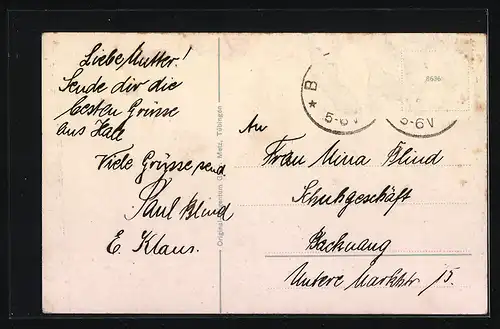 Liebe Mutter!
Sende dir die
besten Grüsse
aus Hall
Viele Grüsse send.
Paul Blind
E. Klaus.
Metz, Tübingen
B
* 5-6V
5-6V
8686
An
Frau Mina Blind
Schuhgeschäft
Backnang
Untere Marktstr. 15.